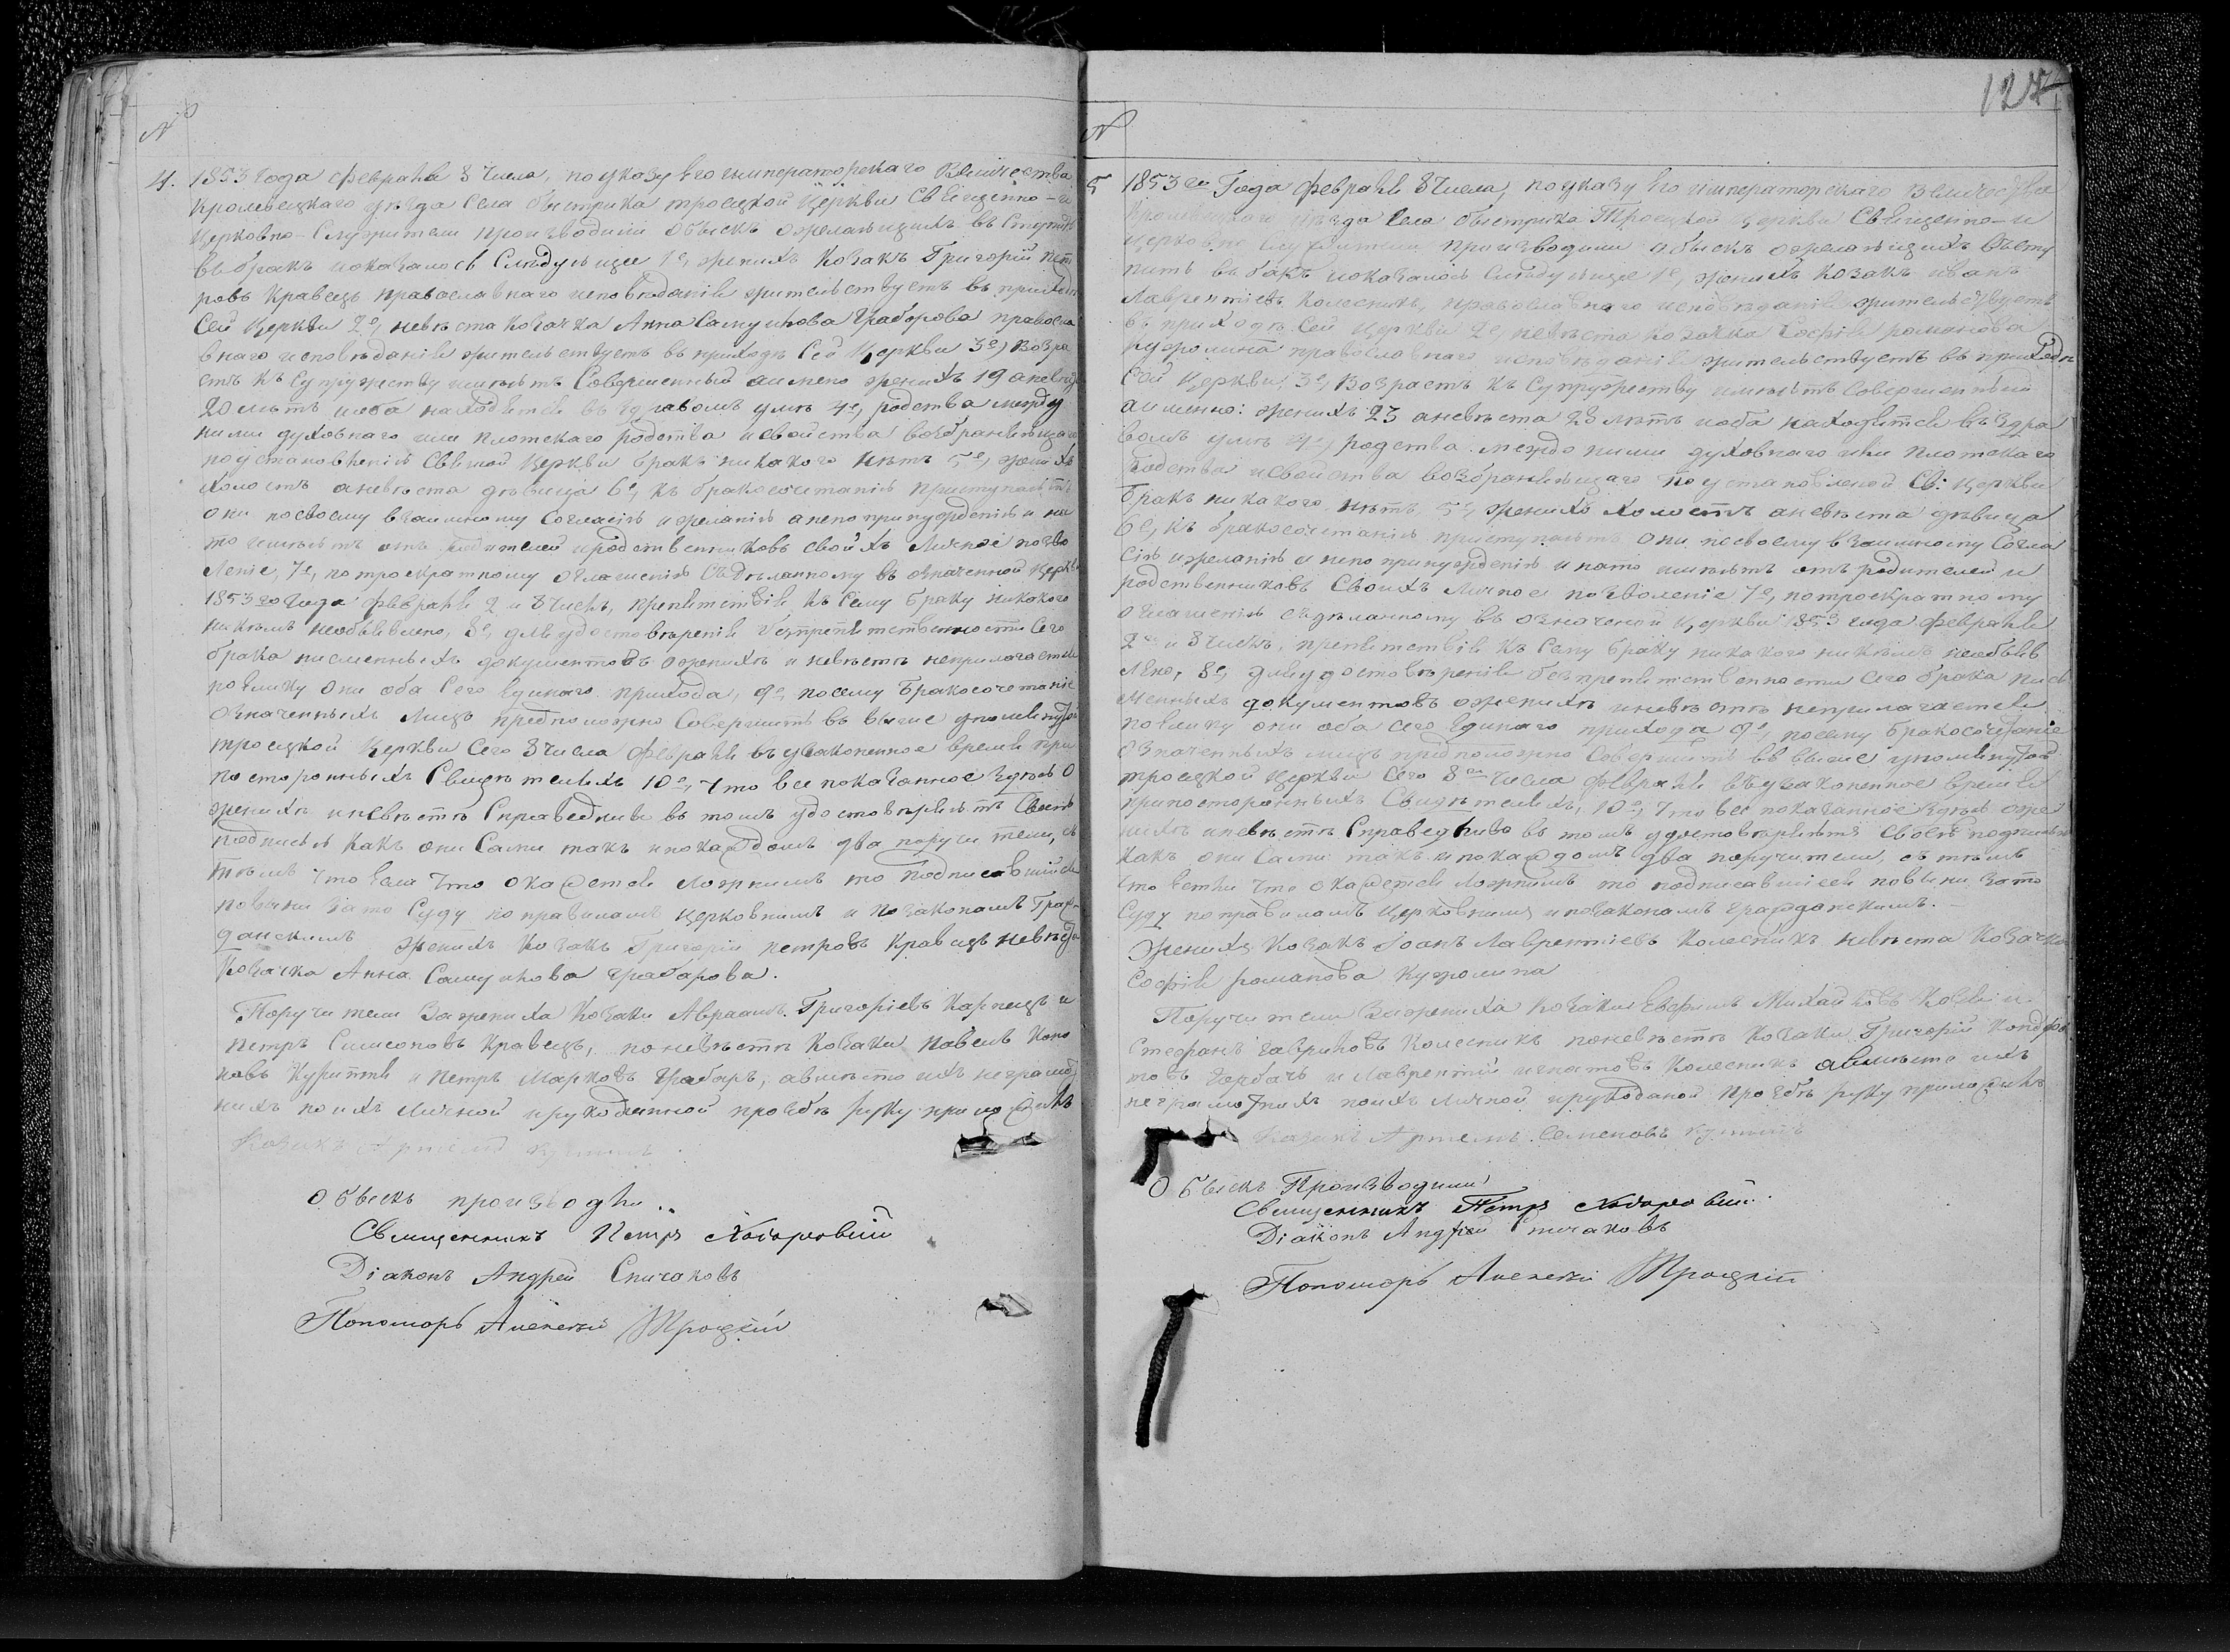 №
4. 1853 года февраля 8 числа, по указу Его императорскаго Величества
Кролевецкаго уезда села быстрика троецкой Церкви Священно-и
Церковно-Служители производили обыскъ о желающихъ въ Ступить
въ бракъ и оказалось Следующее 1е, женихъ Козакъ Григорій Пет
ровъ Кравецъ православнаго исповѣданія жительствуетъ въ приходѣ
Сей Церкви 2е, невѣста козачка Анна Самуилова Граборова правосла
внаго исповѣданія жительствуетъ въ приходѣ Сей Церкви 3е, Возра
стъ къ Супружеству имеютъ Совершенный аимено женихъ 19 а невѣс
20 лѣтъ иоба находятся въ здравомъ умѣ 4е, родства между
ними духовнаго или плотскаго родства и свойства возбраняющаго
по установленію Святой Церкви бракъ никакого нѣтъ 5е, женихъ
холостъ аневѣста дѣвица 6е, къ бракосочетанію приступаютъ
они по своему взаимному Согласію ижеланію анепопринужденію и на
то имѣютъ отъ родителей и родственниковъ своихъ Личное позво
леніе, 7е, потроекратному оглашенію Сдѣланному въ означенной Церкви
1853 го года февраля 2 и 8 числъ, препятствія къ Сему браку никакого
никѣмъ необъявлено, 8е, для удостовѣренія безпрепятственности Сего
брака писменныхъ документовъ оженихѣ и невѣстѣ неприлагается
поелику они оба Сего Единаго прихода, 9е, посему Бракосочетаніе
Означенныхъ лицъ предположно Совершить въ выше упомянутой
троецкой Церкви Сего 8 числа февраля въ узаконенное время при
постороннихъ Свидѣтеляхъ 10е, Что все показанное здѣсь О
женихѣ иневѣстѣ Справедливо въ томъ удостовѣряютъ Своею
подписью Какъ они Сами такъ ипокаждомъ два поручители, съ
тѣмъ что Если Что окажется Ложнимъ то Подписавшійся
повини зато Суду по правиламъ церковнимъ и по законамъ Граж-
данскимъ Женихъ Козакъ Григорій петровъ Кравецъ невѣста
Козачка Анна Самуилова Грабарова.
Поручители Зажениха Козаки Авраамъ Григоріевъ Карпецъ и
Петръ Симеоновъ Кравецъ, поневѣстѣ Козаки Павелъ Коно
новъ и Петръ Марковъ Грабаръ, авмѣсто ихъ неграмот
нихъ поихъ Личной ирукоданной прозбѣ руку приложилъ
Козакъ Артемъ
Обыскъ производили
Священникъ Петръ
Діаконъ Андрей Спичаковъ
Пономарь Алексѣй Троцкій
127
№
5 1853 го Года февраля 8 числа, поуказу Его императорскаго Величества
Кролевецкаго уѣзда Села быстрика Троецкой Церкви Священно-и
церковно служители производили обыскъ ожелающихъ въсту
пить въ бакъ иоказалось Следующее 1е, женихъ козакъ иванъ
Лаврентіевъ Колесникъ, православнаго исповѣданія жительствуетъ
въ приходѣ Сей церкви 2е, невѣста козачка Софія романова
православнаго исповѣданія жительствуетъ въ приходѣ
Сей Церкви, 3е, Возрастъ къ Супружеству имѣютъ Совершенный
аименно: женихъ 23 аневѣста 23 лѣтъ иоба находятся въ здра
вомъ умѣ 4е, родства между ними духовнаго или плотскаго
родства исвойства возбраняющаго поустановленой Св: церкви
бракъ никакого нѣтъ 5е, женихъ холостъ аневѣста дѣвица
6е, къ бракосочетанію приступаютъ они посвоему взаимному Согла
сію ижеланію и непопринужденію и нато имѣютъ отъ родителей и
родственниковъ Своихъ личное позволеніе 7е, потроекратному
оглашенію сдѣланному въ означеной церкви 1853 года февраля
2 и 8 числъ, препятствія къ Сему браку никакого никѣмъ необъяв
лено, 8е, Для удостовѣренія безпрепятственности Сего брака пись
менныхъ документовъ оженихѣ иневѣстѣ неприлагается
поелику они оба сего Единаго прихода 9е, посему бракосочетаніе
означенныхъ лицъ предположно Совершить въ выше упомянутой
троецкой Церкви Сего 8го числа февраля въ узаконенное время
припостороннихъ Свидѣтеляхъ, 10е, Что все показанное здѣсь оже
нихѣ иневѣстѣ Справедливо въ томъ удостовѣряютъ своею подписью
Какъ они Сами такъ ипокаждомъ два поручители, съ тѣмъ
что Если что окажется Ложнимъ то подписавшіися повини зато
Суду поправиламъ Церковнимъ ипозаконамъ гражданскимъ.-
Женихъ Козакъ Іоанъ Лаврентіевъ Колесникъ невѣста Козачка
Софія романова
Поручители Зажениха Козаки Евфимъ Михайловъ и
Стефанъ Гавриловъ Колесникъ поневѣстѣ Козаки Григорій
Горбачъ и Лаврентій игнатовъ Колесникъ авмѣсто ихъ
неграмотнихъ поихъ личной ирукоданой прозбѣ руку приложилъ
Козакъ Артемъ Семеновъ
Обыскъ Производили
Священникъ Петръ
Діаконъ Андрей Спичаковъ
Пономарь Алексѣй Троцкій